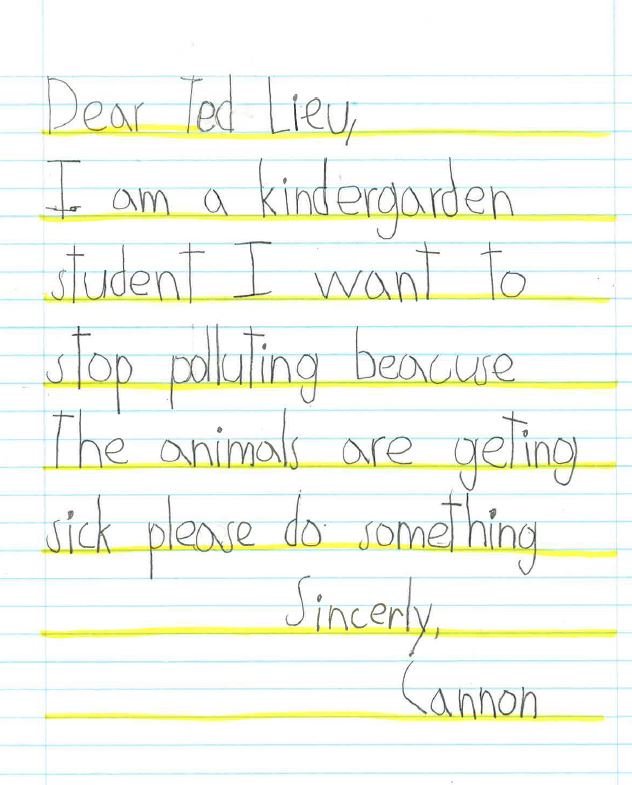 Dear Ted Lieu,
I am a kindergarden
student I want to
stop polluting beacuse
The animals are geting
sick please do something
Sincerly,
Cannon